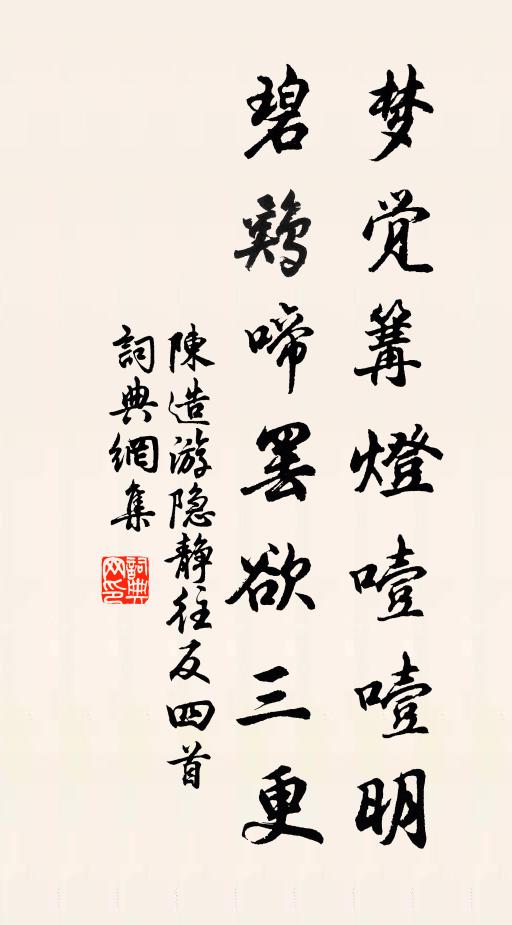 梦觉篝燈噎噎明
碧鷄啼罢欲三更
陳造游隐静往反四首
詞典網集
詞典网印